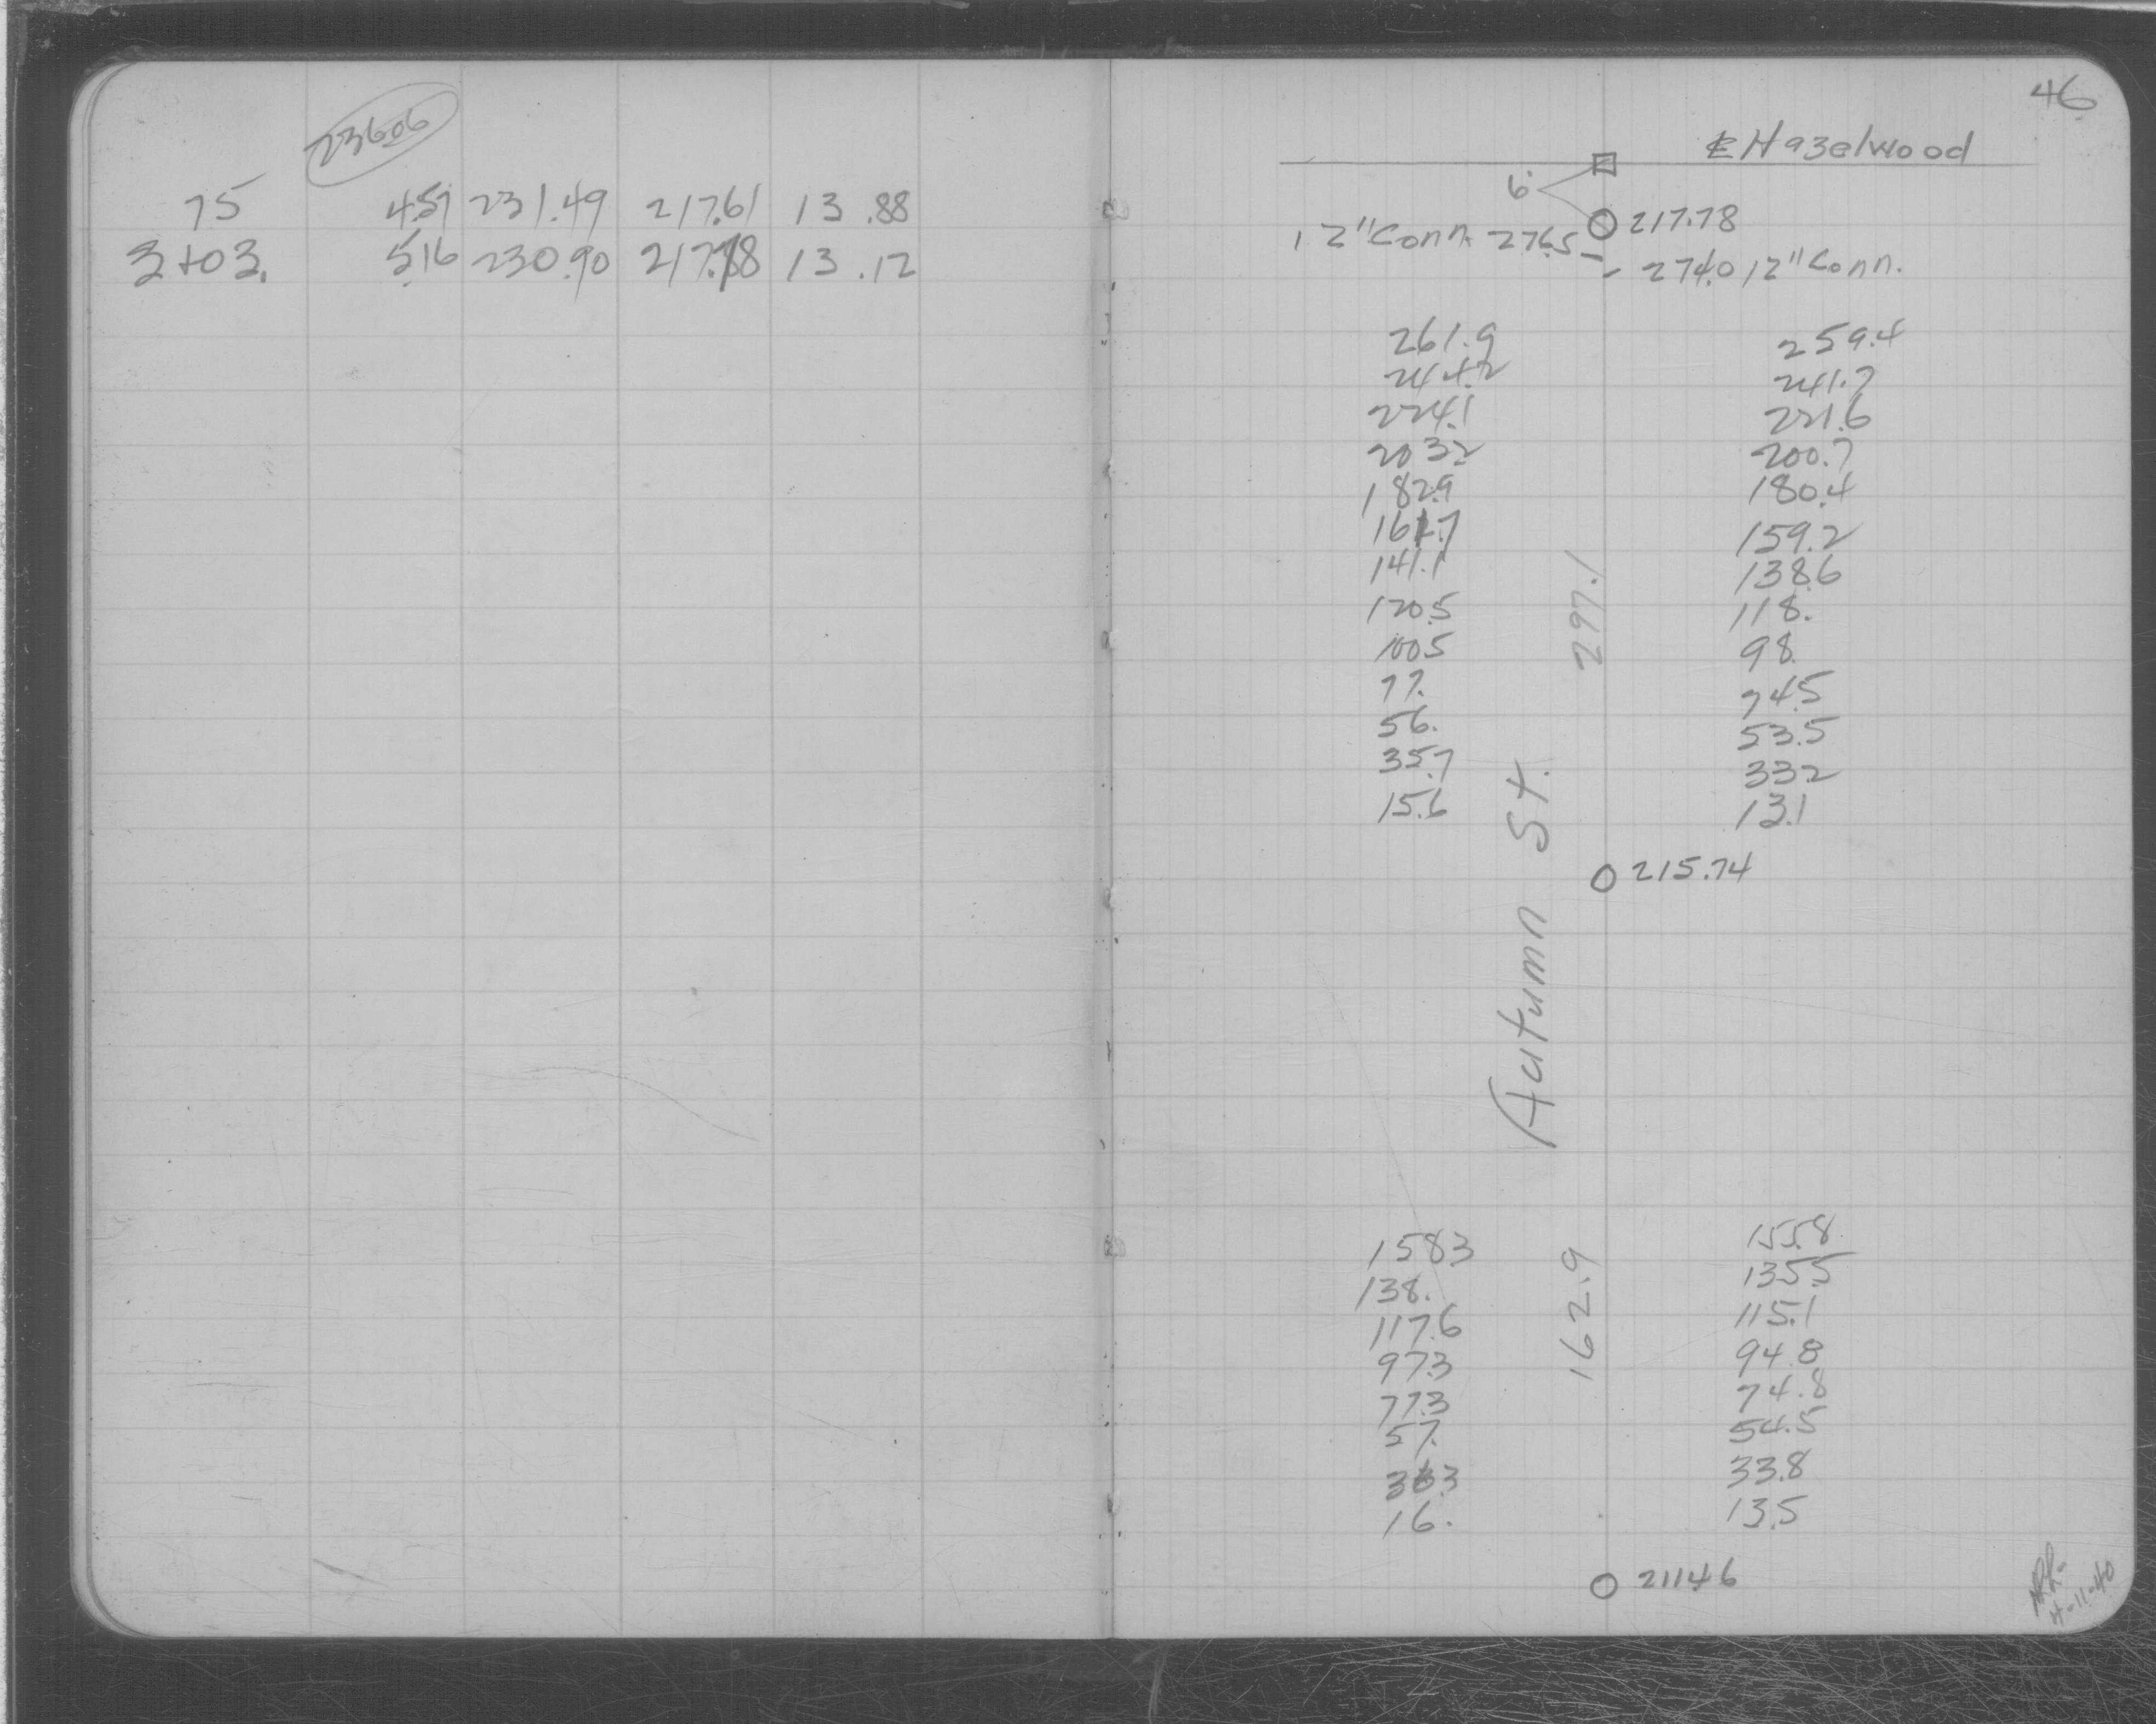 236.06
75 4.57 231.49 217.61 13.88
3+03. 5.16 230.90 217.78 13.12
46
℄ Hazelwood
6.
217.78
12" Conn. 276.5
274.0 12" Conn.
261.9 259.4
244.2 241.7
224.1 221.6
203.2 200.7
182.9 180.4
161.7 159.2
141.1 138.6
120.5 118.
100.5 98.
77. 74.5
56. 53.5
35.7 33.2
15.6 13.1
297.1
215.74
Autumn St.
158.3 155.8
138. 135.5
117.6 115.1
97.3 94.8
77.3 74.8
57. 54.5
36.3 33.8
16. 13.5
162.9
211.46
4-11-40